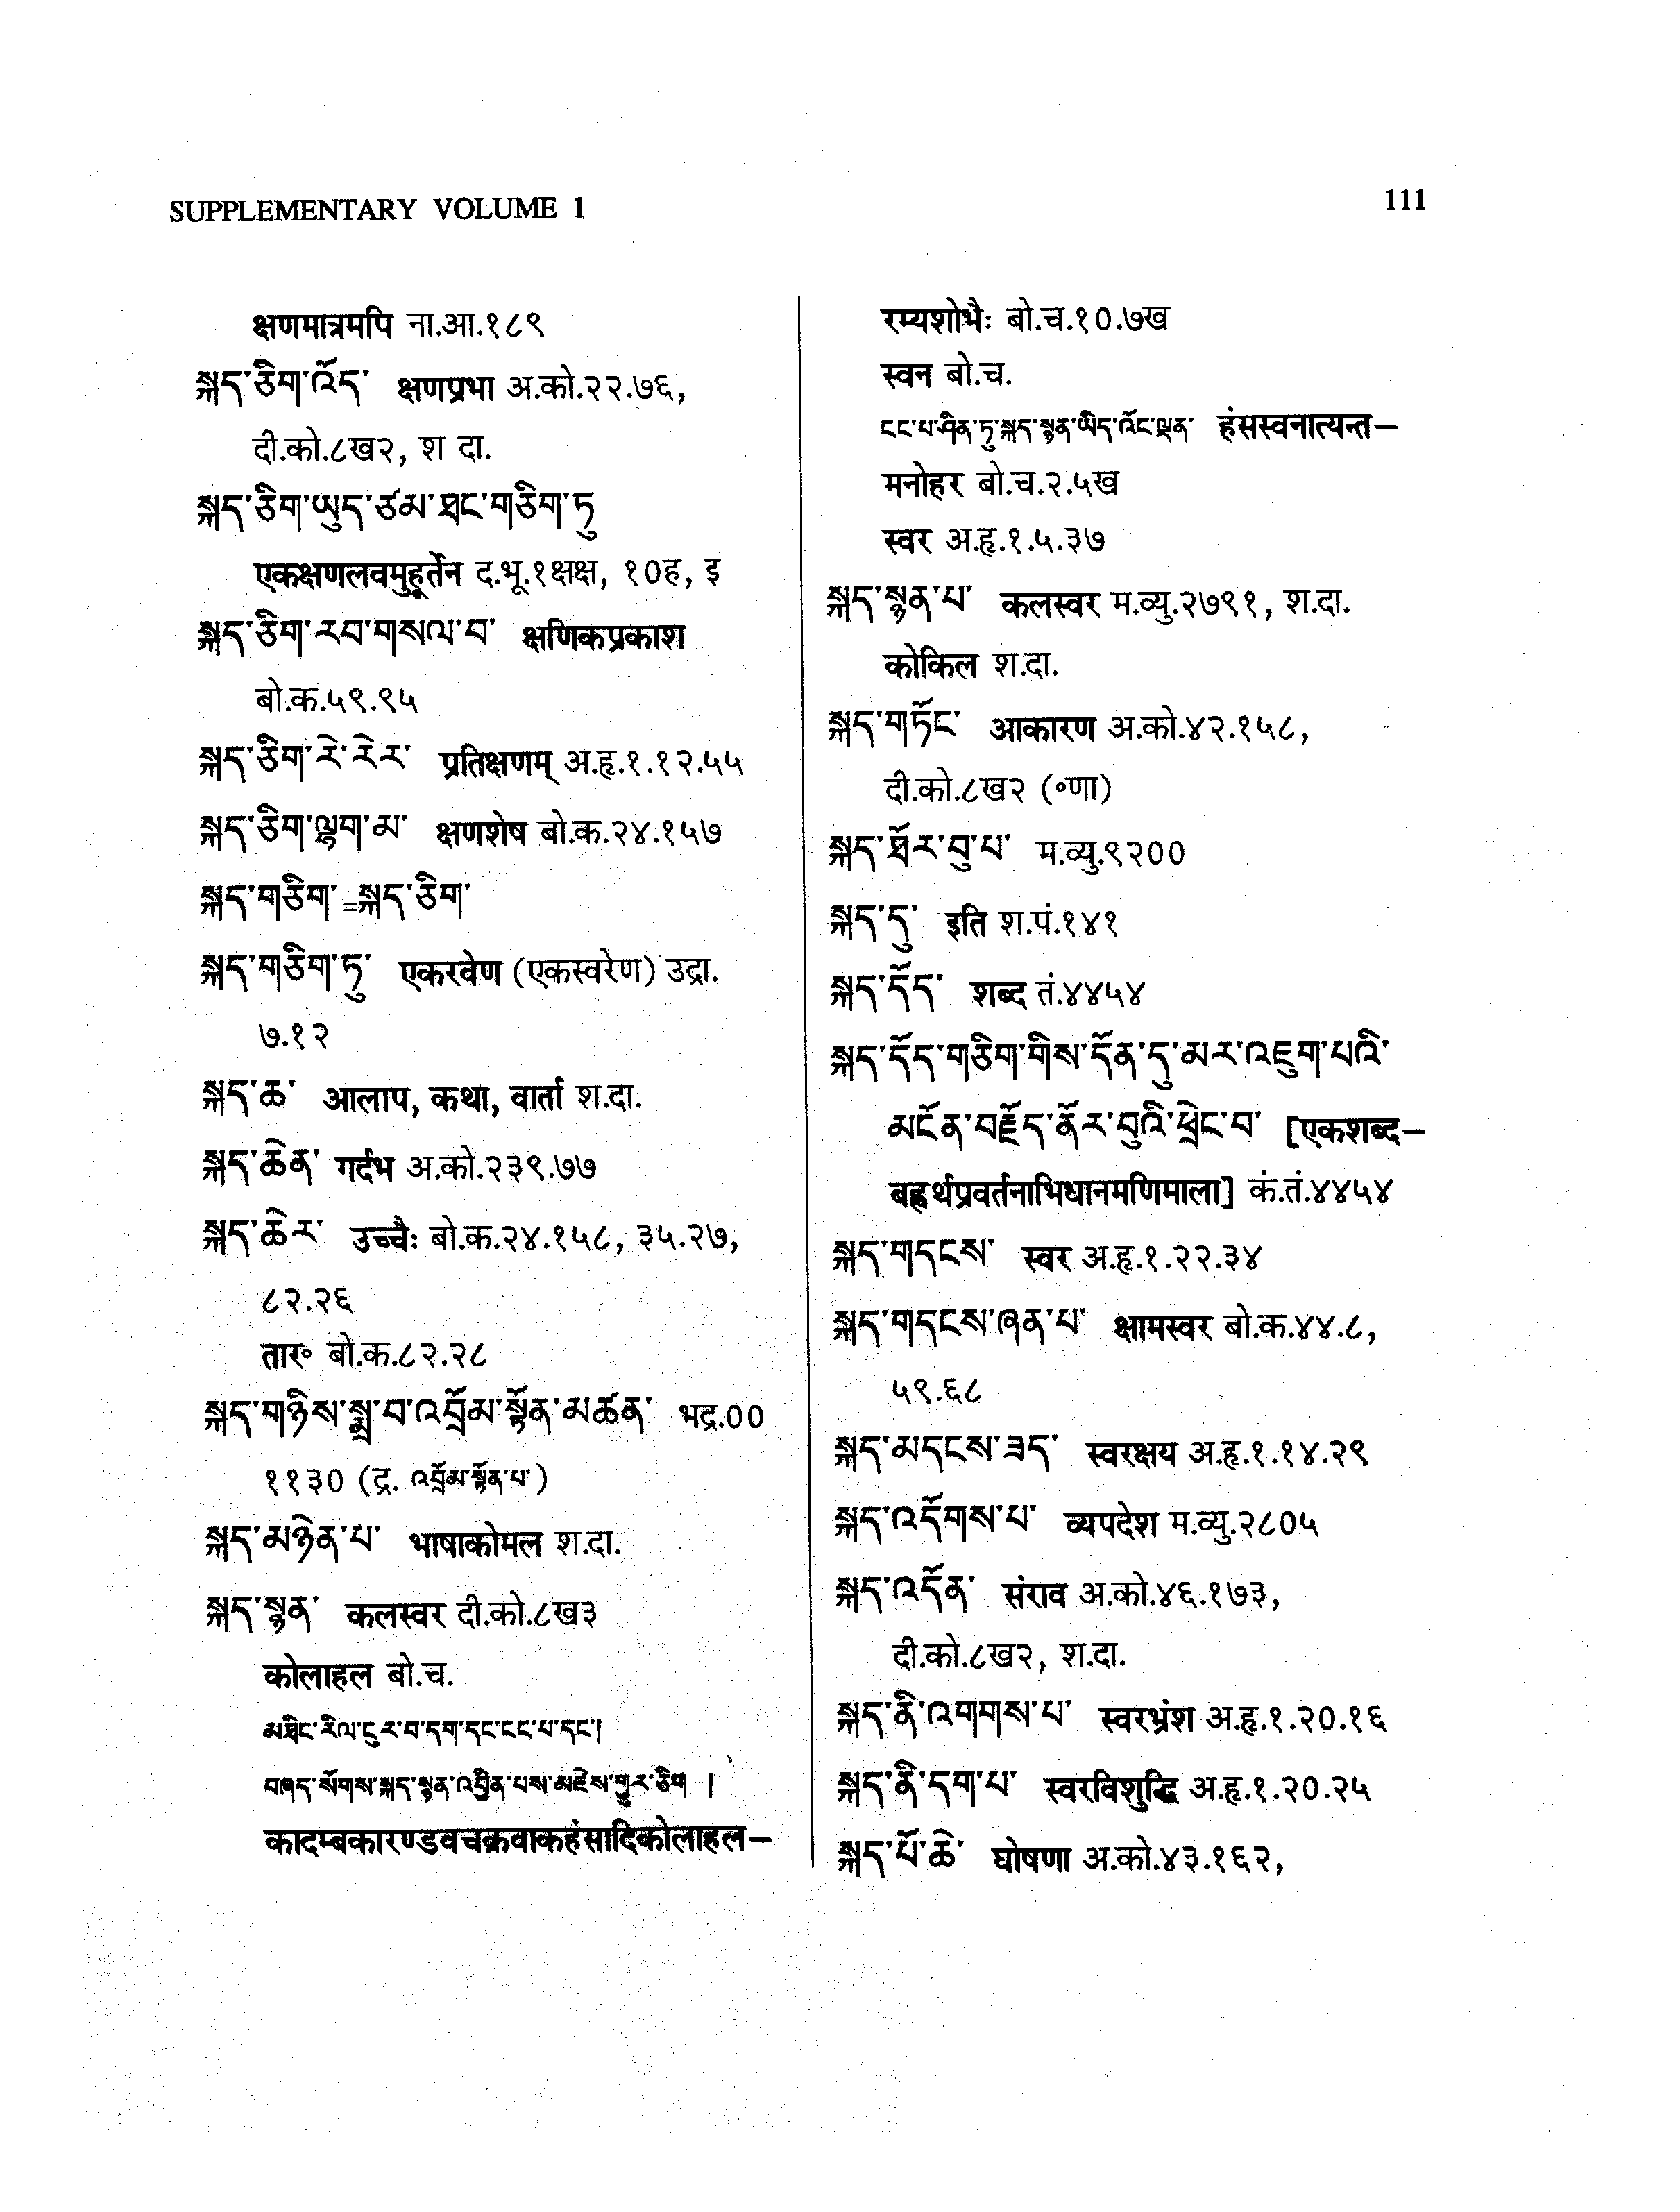 SUPPLEMENTARY VOLUME 1
111
क्षणमात्रमपि ना.आ.१८९
སྐད་ཅིག་འོད་ क्षणप्रभा अ.को.२२.७६,
दी.को.८ख२, श दा.
སྐད་ཅིག་ཡུད་ཙམ་ཐང་གཅིག་ཏུ
एकक्षणलवमुहूर्तेन द.भू.१क्षक्ष, १०ह, इ
སྐད་ཅིག་རབ་གསལ་བ་ क्षणिकप्रकाश
बो.क.५९.९५
སྐད་ཅིག་རེ་རེར་ प्रतिक्षणम् अ.हृ.१.१२.५५
སྐད་ཅིག་ལྷག་མ་ क्षणशेष बो.क.२४.१५७
སྐད་གཅིག་=སྐད་ཅིག་
སྐད་གཅིག་ཏུ་ एकरवेण (एकस्वरेण) उद्रा.
७.१२
སྐད་ཆ་ आलाप, कथा, वार्ता श.दा.
སྐད་ཆེན་ गर्दभ अ.को.२३९.७७
སྐད་ཆེར་ उच्चैः बो.क.२४.१५८, ३५.२७,
८२.२६
तार॰ बो.क.८२.२८
སྐད་གཉིས་སྨྲ་བ་འབྲོམ་སྟོན་མཚན་ भद्र.००
११३० (द्र. འབྲོམ་སྟོན་པ་)
སྐད་མཉེན་པ་ भाषाकोमल श.दा.
སྐད་སྙན་ कलस्वर दी.को.८ख३
कोलाहल बो.च.
མཐིང་རིལ་ངུར་བ་དག་དང་ངང་པ་དང་།
བཞད་སོགས་སྐད་སྙན་འབྱིན་པས་མཛེས་གྱུར་ཅིག །
कादम्बकारण्डवचक्रवाकहंसादिकोलाहल–
रम्यशोभैः बो.च.१०.७ख
स्वन बो.च.
ངང་པ་ཤིན་ཏུ་སྐད་སྙན་ཡིད་འོང་ལྡན་ हंसस्वनात्यन्त–
मनोहर बो.च.२.५ख
स्वर अ.हृ.१.५.३७
སྐད་སྙན་པ་ कलस्वर म.व्यु.२७९१, श.दा.
कोकिल श.दा.
སྐད་གཏོང་ आकारण अ.को.४२.१५८,
दी.को.८ख२ (॰णा)
སྐད་ཐོར་བུ་པ་ म.व्यु.९२००
སྐད་དུ་ इति श.पं.१४१
སྐད་དོད་ शब्द तं.४४५४
སྐད་དོད་གཅིག་གིས་དོན་དུ་མར་འཇུག་པའི་
མངོན་བརྗོད་ནོར་བུའི་ཕྲེང་བ་ [एकशब्द–
बह्वर्थप्रवर्तनाभिधानमणिमाला] कं.तं.४४५४
སྐད་གདངས་ स्वर अ.हृ.१.२२.३४
སྐད་གདངས་ཞན་པ་ क्षामस्वर बो.क.४४.८,
५९.६८
སྐད་མདངས་ཟད་ स्वरक्षय अ.हृ.१.१४.२९
སྐད་འདོགས་པ་ व्यपदेश म.व्यु.२८०५
སྐད་འདོན་ संराव अ.को.४६.१७३,
दी.को.८ख२, श.दा.
སྐད་ནི་འགགས་པ་ स्वरभ्रंश अ.हृ.१.२०.१६
སྐད་ནི་དག་པ་ स्वरविशुद्धि अ.हृ.१.२०.२५
སྐད་པོ་ཆེ་ घोषणा अ.को.४३.१६२,